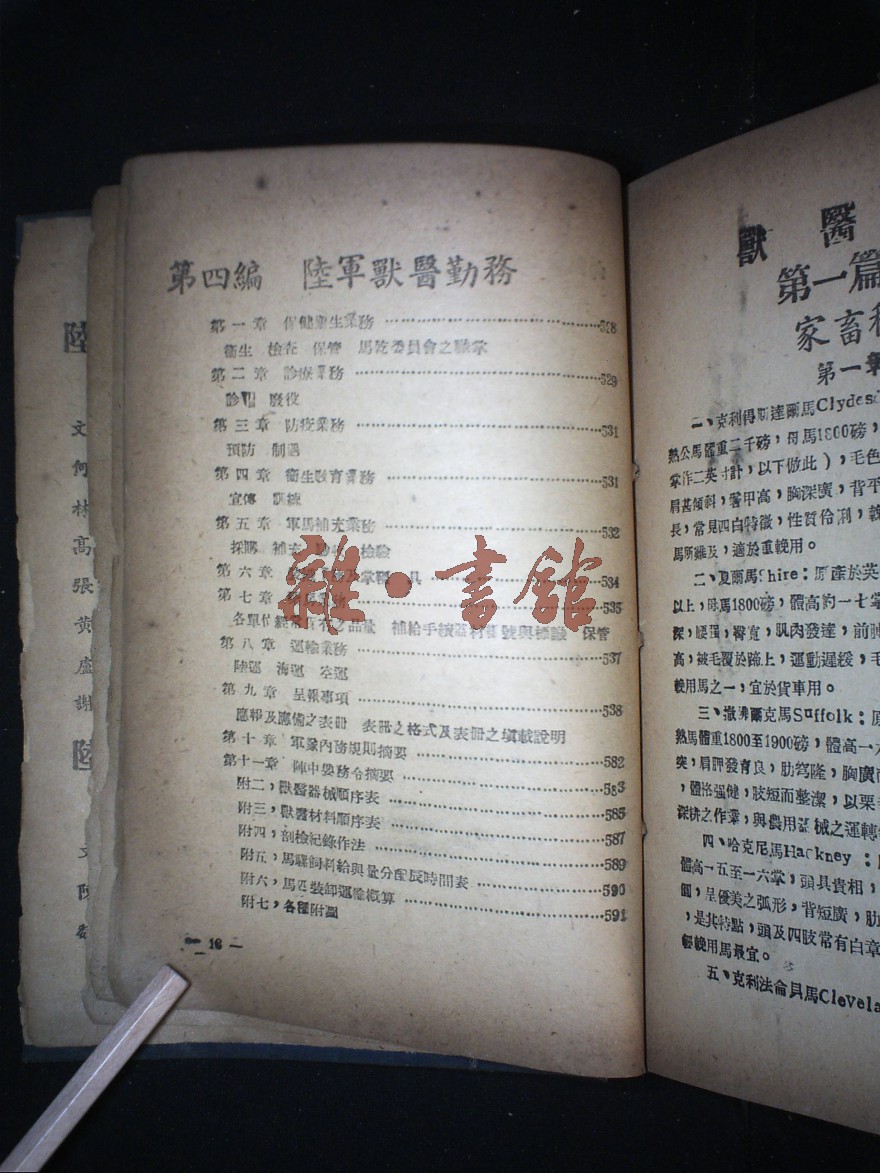 陸
文
何
林
高
張
黃
盧
謝
陸
文
陳
第四編 陸軍獸醫勤務
第一章 保健衛生業務 528
衛生 檢查 保管 馬乾委員會之職掌
第二章 診療業務 529
診 廢役
第三章 防疫業務 531
預防 制遏
第四章 衛生教育業務 531
宣傳 訓練
第五章 軍馬補充業務 532
採購 補充 檢驗
第六章 掌 具 534
第七章 535
各單位經常 有之品量 補給手續器材 號與標識 保管
第八章 運輸業務 537
陸運 海運 空運
第九章 呈報事項 538
應報及應備之表冊 表冊之格式及表冊之填載說明
第十章 軍隊內務規則摘要 582
第十一章 陣中要務令摘要 583
附二,獸醫器械順序表 585
附三,獸醫材料順序表 587
附四,剖檢紀錄作法 589
附五,馬騾飼料給與量分配長時間表 590
附六,馬匹裝卸運輸概算 591
附七,各種附圖
— 16 —
雜·書館
獸醫
第一篇
家畜
第一章
一、克利得斯達爾馬Clydes
熱公馬體重二千磅,母馬1800磅,
掌作二英寸計,以下倣此),毛色
肩甚傾斜,鬐甲高,胸深廣,背平
長,常見四白特徵,性質伶俐,
馬所難及,適於重輓用。
二、夏爾馬Shire:原產於英
以上,母馬1800磅,體高約一七掌
深,腰強,臀寬,肌肉發達,前
高,被毛覆於蹄上,運動遲緩,毛
輓用馬之一,宜於貨車用。
三、撒沸爾克馬Suffolk:原
熱馬體重1800至1900磅,體高一
突,肩胛發育良,肋穹隆,胸廣
,體格强健,肢短而整潔,以栗
深耕之作業,與農用器械之運轉
四、哈克尼馬Hackney:
體高一五至一六掌,頭具貴相,
圓,呈優美之弧形,背短廣,肋
,是其特點,頭及四肢常有白章
輕輓用馬最宜。
五、克利法侖具馬Clevela